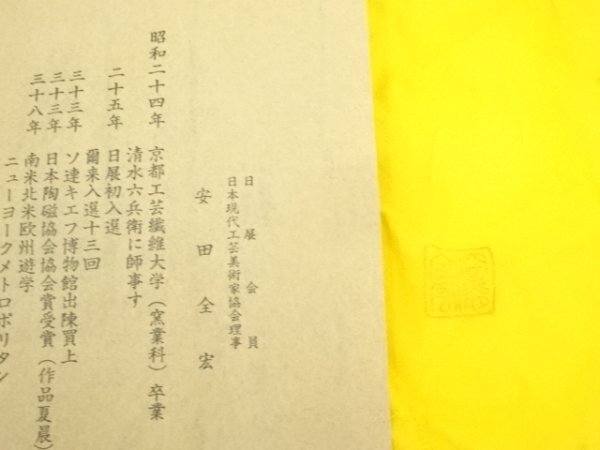 日展会員
日本現代工芸美術家協会理事
安田全宏
昭和二十四年 京都工芸繊維大学（窯業科）卒業
清水六兵衛に師事す
二十五年 日展初入選
爾来入選十三回
三十三年 ソ連キエフ博物館出陳買上
三十三年 日本陶磁協会協会賞受賞（作品夏晨）
三十八年 南米北米欧州遊学
ニューヨークメトロポリタン